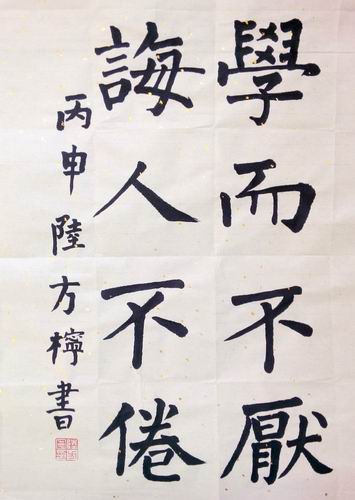 學而不厭
誨人不倦
丙申陸方檸書